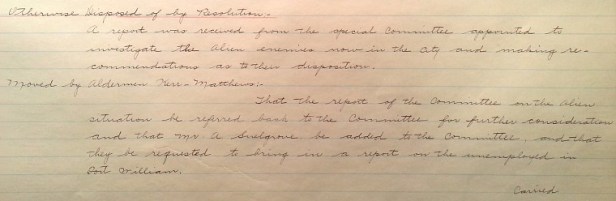 Otherwise Disposed of by Resolution.-
A report was received from the special Committee appointed to
investigate the Alien enemies now in the City and making re-
commendations as to their disposition.
Moved by Aldermen Kerr-Matthews:-
That the report of the Committee on the Alien
situation be referred back to the Committee for further consideration
and that Mr. A Snelgrove be added to the Committee, and that
they be requested to bring in a report on the unemployed in
Fort William.
Carried